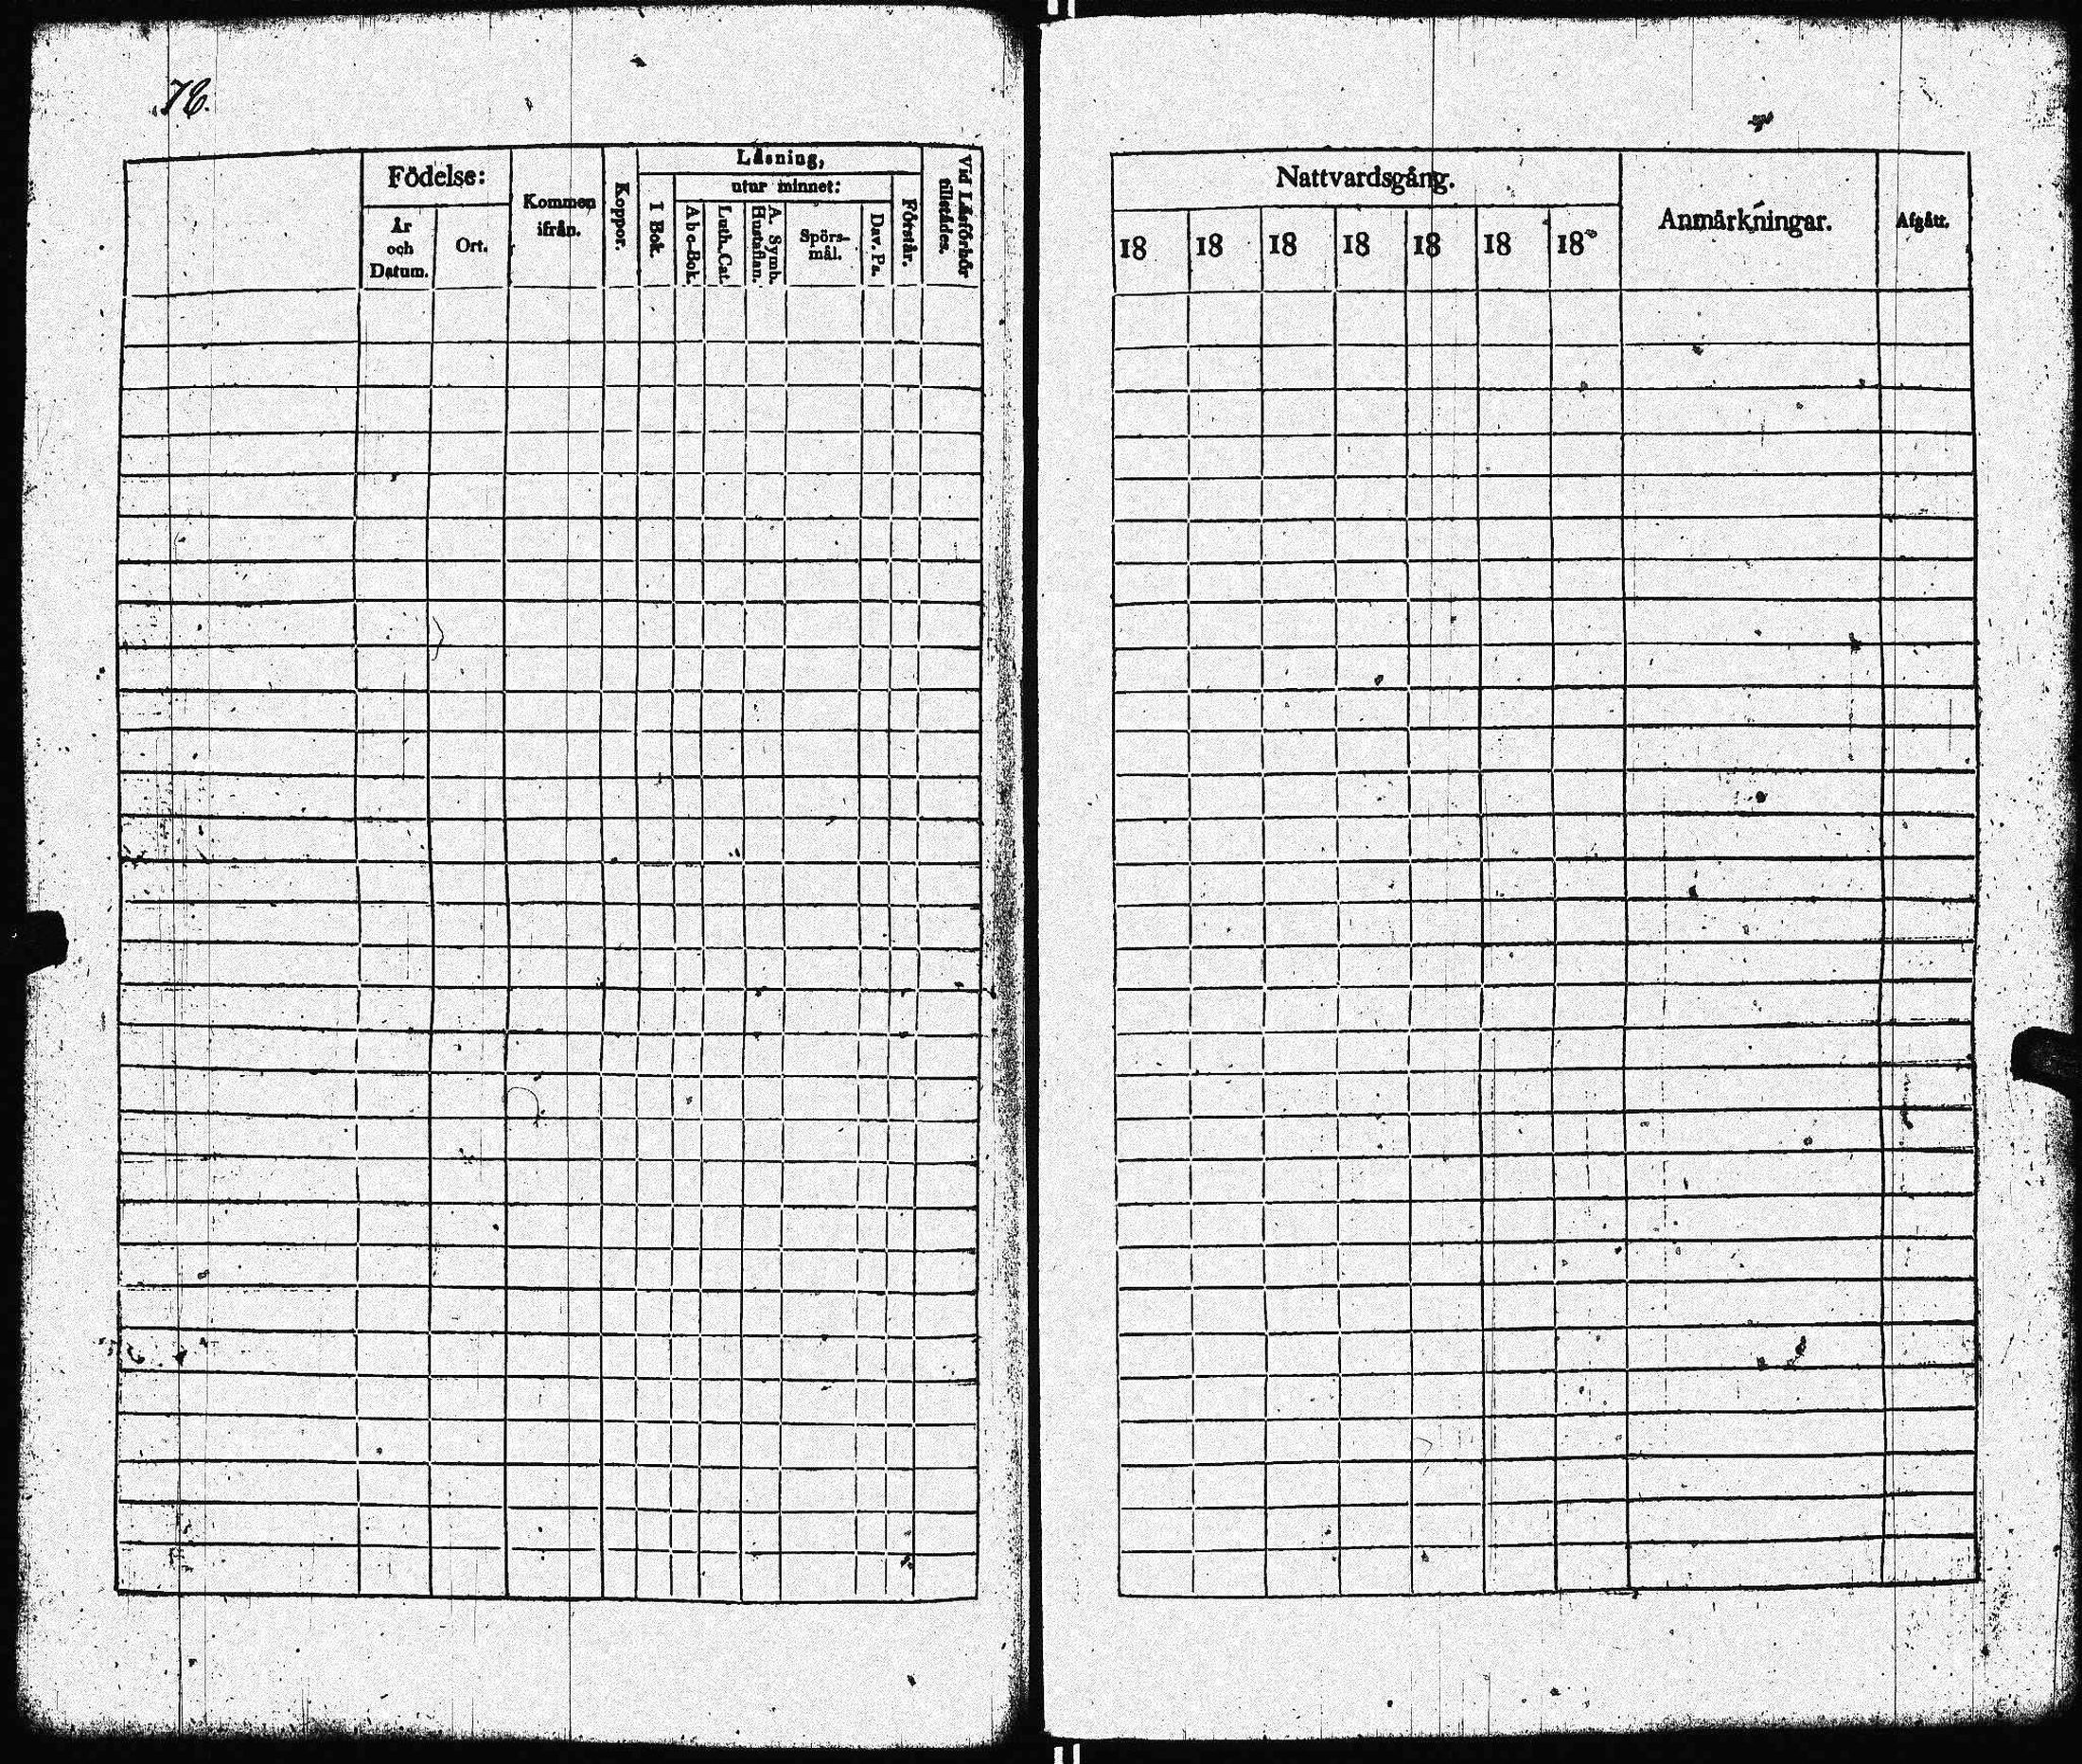 76.
Födelse:
År
och
Datum.
Ort.
Kommen
ifrån.
Koppor.
Läsning,
utur minnet:
I Bok.
Abc-Bok.
Luth.Cat.
A. Symb.
Hustaflan.
Spörs-
mål.
Dav. Ps.
Förstår.
Vid Läsförhör
tillstädes.
Nattvardsgång.
18 18 18 18 18 18 18
Anmärkningar.
Afgått.